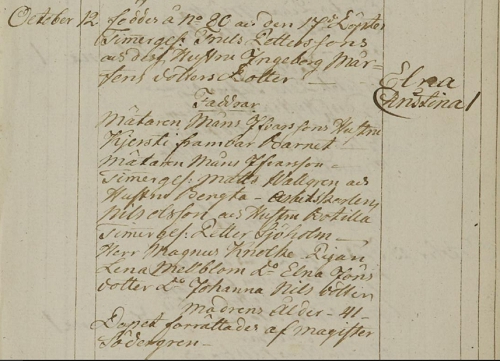 October 12. Födder å No 80 av den 17de Döptes
Timerges: Truls Pettersfons
och defs Huftru Ingeborg Mår-
tens dotters Dotter
Elna
Christina
Faddrar
Mätaren Måns Ifvarsfons Huftru
Kjersti frambar Barnet
Mätaren Måns Ifvarson
Timerges: Matts Wallgren och
Huftru Bengta - Arbetskarlen
Nils Olsfon och Huftru Botilla
Timerges: Petter Sjöholm
Herr Magnus Knolke Pigan
Lena Melblom Do Elna Jöns
dotter Do Johanna Nils dotter
Modrens Ålder - 41 -
Dopet förrättades af magister
Södergren